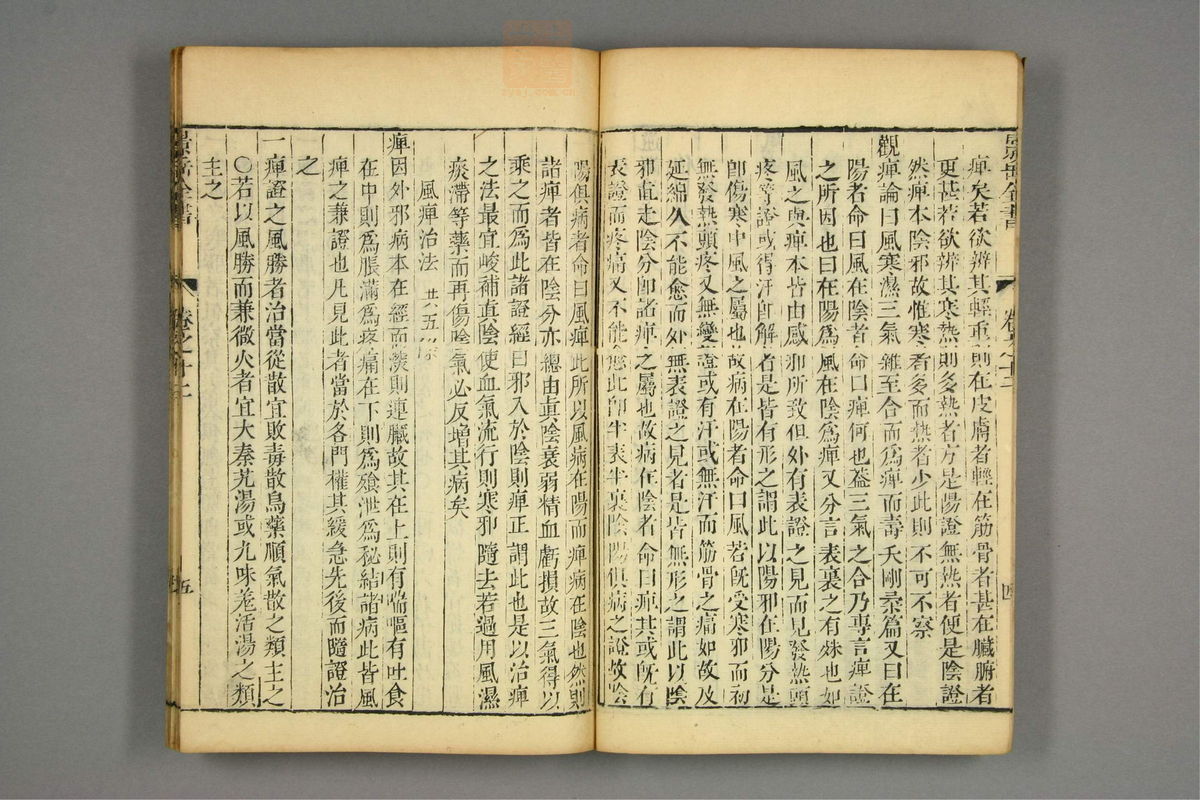 痺矣若欲辨其輕重則在皮膚者輕在筋骨者甚在臟腑者
更甚若欲辨其寒熱則多熱者方是陽證無熱者便是陰證
然痺本陰邪故惟寒者多而熱者少此則不可不察
觀痺論曰風寒濕三氣雜至合而爲痺而壽夭剛柔篇又曰在
陽者命曰風在陰者命曰痺何也蓋三氣之合乃專言痺證
之所因也曰在陽爲風在陰爲痺又分言表裏之有殊也如
風之與痺本皆由感邪所致但外有表證之見而見發熱頭
疼等證或得汗卽解者是皆有形之謂此以陽邪在陽分是
卽傷寒中風之屬也故病在陽者命曰風若旣受寒邪而初
無發熱頭疼又無變證或有汗或無汗而筋骨之痛如故及
延綿久不能愈而外無表證之見者是皆無形之謂此以陰
邪直走陰分卽諸痺之屬也故病在陰者命曰痺其或旣有
表證而疼痛又不能愈此卽半表半裏陰陽俱病之證故陰
景岳全書
卷之十二
四
陽俱病者命曰風痺此所以風病在陽而痺病在陰也然則
諸痺者皆在陰分亦總由眞陰衰弱精血虧損故三氣得以
乘之而爲此諸證經曰邪入於陰則痺正謂此也是以治痺
之法最宜峻補眞陰使血氣流行則寒邪隨去若過用風濕
痰滯等藥而再傷陰氣必反增其病矣
風痺治法 共五條
痺因外邪病本在經而深則連臟故其在上則有喘嘔有吐食
在中則爲脹滿爲疼痛在下則爲飱泄爲秘結諸病此皆風
痺之兼證也凡見此者當於各門權其緩急先後而隨證治
之
一痺證之風勝者治當從散宜敗毒散烏藥順氣散之類主之
○若以風勝而兼微火者宜大秦艽湯或九味羌活湯之類
主之
景岳全書
卷之十二
五